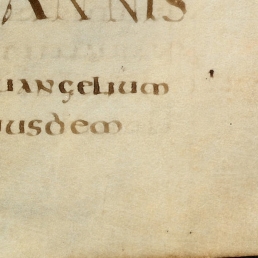 ANNIS
uangelium
iusdem